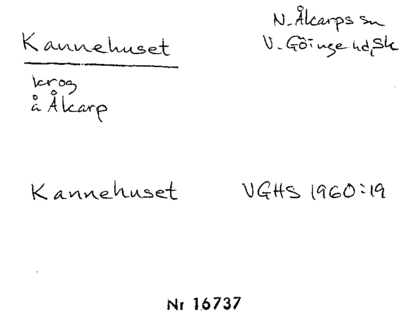 Kannehuset
N. Åkarps sn
V. Göinge hd, Sk
krog
å Åkarp
Kannehuset VGHS 1960:19
Nr 16737